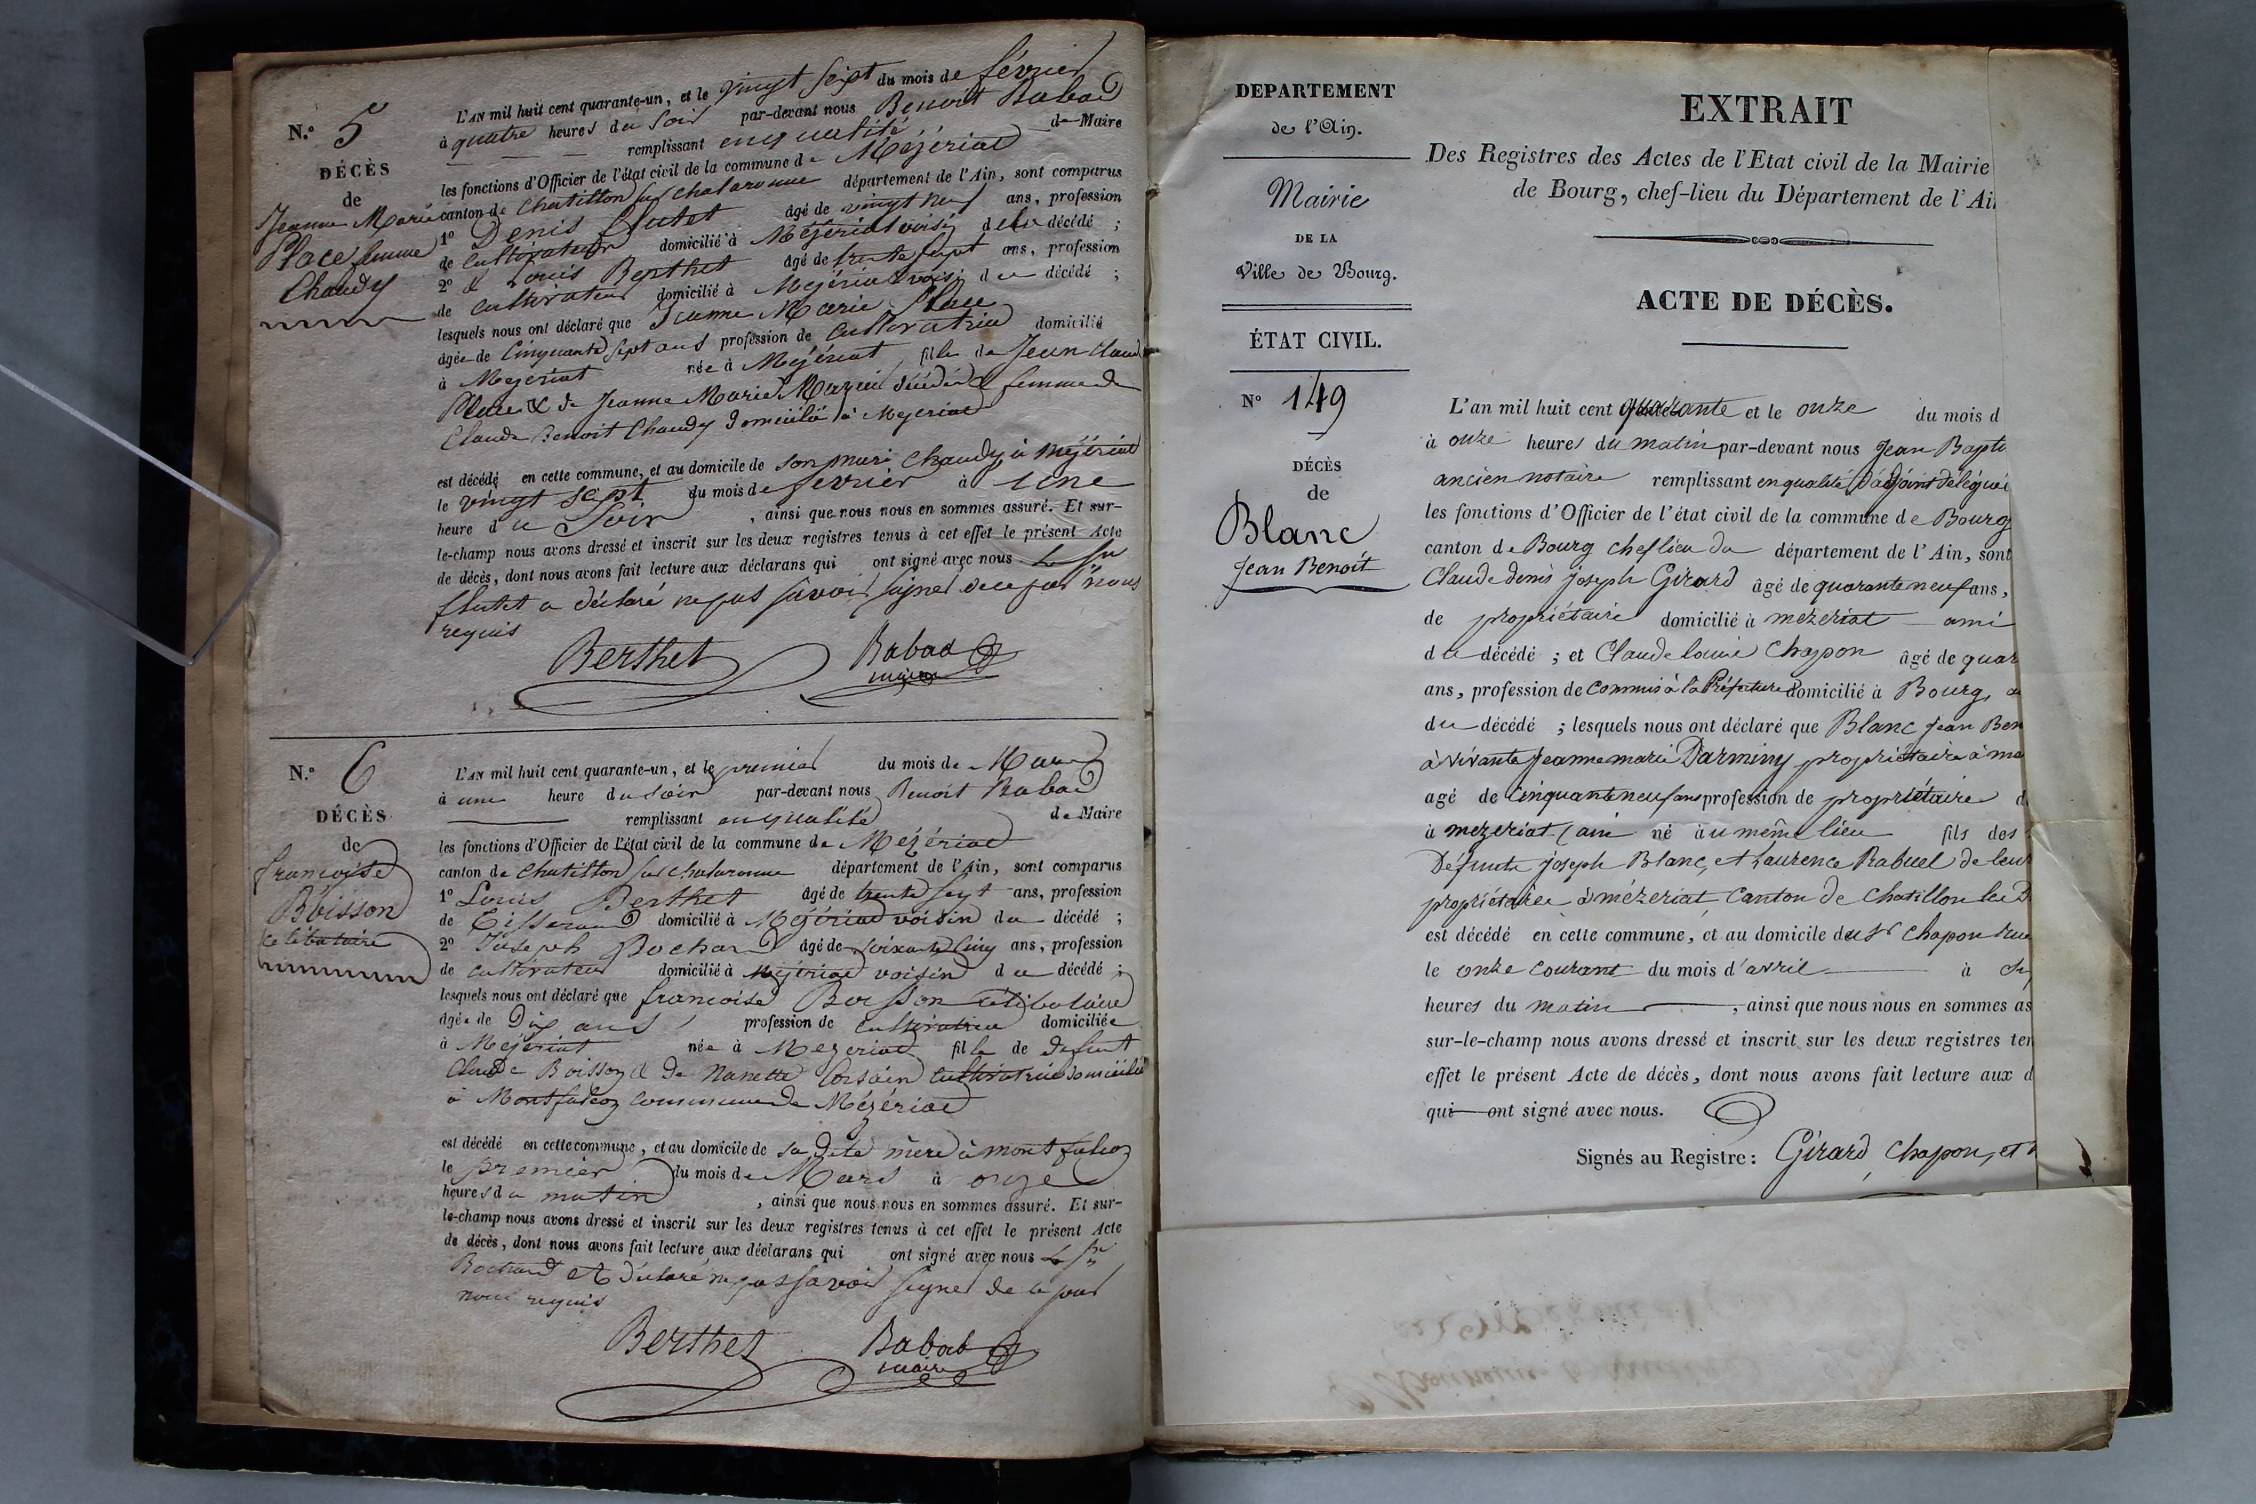 N.° 5
DÉCÈS
de
Jeanne Marie
Place femme
Chaudy
L'AN mil huit cent quarante-un, et le vingt sept du mois de février
à quatre heures du soir par-devant nous Benoit Rabad
remplissant en qualité de Maire
les fonctions d'Officier de l'état civil de la commune de Mézériat
canton de Chatillon sur chalaronne département de l'Ain, sont comparus
1° Denis flutet âgé de vingt neuf ans, profession
de Cultivateur domicilié à Mézériat voisin de la décédé ;
2° & Louis Berthet âgé de trente sept ans, profession
de cultivateur domicilié à Mézériat voisin du décédé ;
lesquels nous ont déclaré que Jeanne Marie Place
âgée de Cinquante sept ans profession de Cultivatrice domicilié
à Mezeriat née à Mezériat fille de Jean Claude
Place & de Jeanne Marie décédés femme de
Claude Benoit Chaudy Domicilié à Mezeriat
est décédé en cette commune, et au domicile de son mari Chaudy, à Mézériat
le vingt sept du mois de fevrier à une
heure du Soir , ainsi que nous nous en sommes assuré. Et sur-
le-champ nous avons dressé et inscrit sur les deux registres tenus à cet effet le présent Acte
de décès, dont nous avons fait lecture aux déclarans qui ont signé avec nous le Sr
flutet a déclaré ne pas savoir signer de ce par nous
requis
Berthet Rabad
maire
N.° 6
DÉCÈS
de
francoise
Boisson
celibataire
L'AN mil huit cent quarante-un, et le premier du mois de Mars
à une heure du soir par-devant nous Benoit Rabad
remplissant en qualité de Maire
les fonctions d'Officier de l'état civil de la commune de Mézériat
canton de Chatillon sur chalaronne département de l'Ain, sont comparus
1° Louis Berthet âgé de trente sept ans, profession
de Tisserand domicilié à Mézériat voisin du décédé ;
2° Joseph Bochard âgé de soixante cinq ans, profession
de cultivateur domicilié à Mézériat voisin du décédé ;
lesquels nous ont déclaré que francoise Boisson célibataire
âgée de Dix ans profession de cultivatrice domiciliée
à Mézériat née à Mezeriat fille de defunt
Claude Boisson & de Nanette cultivatrice domicilié
à Montfalcon commune de Mézériat
est décédé en cette commune, et au domicile de sa dite mère à montfalcon
le premier du mois de Mars à onze
heures du matin , ainsi que nous nous en sommes assuré. Et sur-
le-champ nous avons dressé et inscrit sur les deux registres tenus à cet effet le présent Acte
de décès, dont nous avons fait lecture aux déclarans qui ont signé avec nous Le Sr
Bochard a déclaré ne pas savoir signer de ce par
nous requis
Berthet Rabad
maire
DEPARTEMENT
de l'Ain.
Mairie
DE LA
Ville de Bourg.
ÉTAT CIVIL.
N° 149
DÉCÈS
de
Blanc
Jean Benoit
EXTRAIT
Des Registres des Actes de l'Etat civil de la Mairie
de Bourg, chef-lieu du Département de l'Ai
ACTE DE DÉCÈS.
L'an mil huit cent quarante et le onze du mois d
à onze heures du matin par-devant nous Jean Bapti
ancien notaire remplissant en qualité d'adjoint délégué
les fonctions d'Officier de l'état civil de la commune de Bourg
canton de Bourg chef lieu du département de l'Ain, sont
Claude denis joseph Girard âgé de quarante neuf ans,
de propriétaire domicilié à mezeriat ami
du décédé ; et Claude louis Chapon âgé de quar
ans, profession de Commis à la Préfecture domicilié à Bourg, a
du décédé ; lesquels nous ont déclaré que Blanc Jean Ben
à vivante Jeanne marie Darminy, propriétaire à me
agé de Cinquante neuf ans profession de propriétaire d
à mezeriat (ain né au même lieu fils des
Défunts joseph Blanc, et Laurence Rabuel de leur
propriétaire à mézeriat, Canton de Chatillon les D
est décédé en cette commune, et au domicile du Sr Chapon rue
le onze courant du mois d'avril à
heures du matin , ainsi que nous nous en sommes as
sur-le-champ nous avons dressé et inscrit sur les deux registres ten
effet le présent Acte de décès, dont nous avons fait lecture aux d
qui ont signé avec nous.
Signés au Registre : Girard, Chapon, et